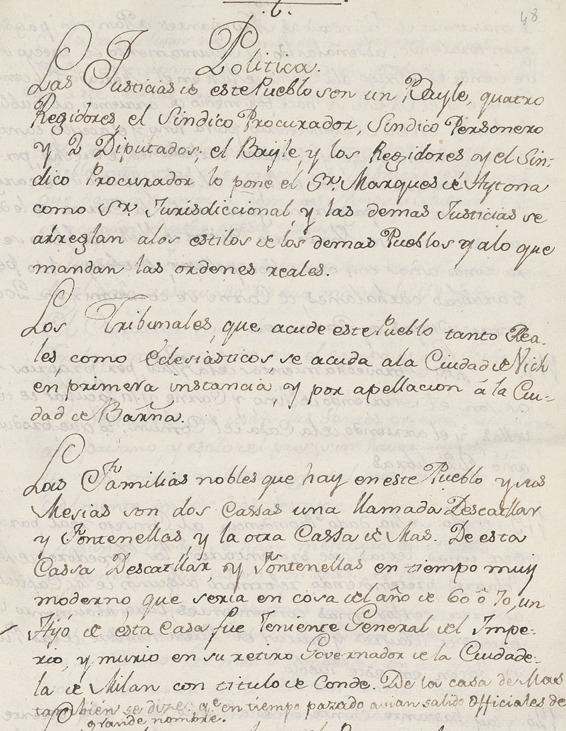 .6.
48
Politica.
Las Justicias de este Pueblo son un Bayle, quatro
Regidores, el Sindico Procurador, Sindico Personero
y 2 Diputados: el Bayle y los Regidores y el Sin-
dico Procurador lo pone el Sr. Marques de Aytona
como Sr. Jurisdiccional y las demas Justicias se
arreglan alos estilos de los demas Pueblos y alo que
mandan las ordenes reales.
Los Tribunales, que acude este Pueblo tanto Rea-
les como Eclesiasticos se acuda ala Ciudad de Vich
en primera instancia, y por apellacion á la Ciu-
dad de Barna.
Las Familias nobles que hay en este Pueblo y sus
Mesias son dos Cassas una llamada Descatllar
y Fontenellas, y la otra Cassa de Mas. De esta
Cassa Descatllar y Fontenellas en tiempo muy
moderno que seria en cosa del año de 60 ô 70, un
Hijo de esta Casa fue Teniente General del Impe-
rio, y murio en su retiro Governador de la Ciudade-
la de Milan con titulo de Conde. De la casa de Mas
tambien se dize qe. en tiempo pazado avian salido Officiales de
grande nombre.